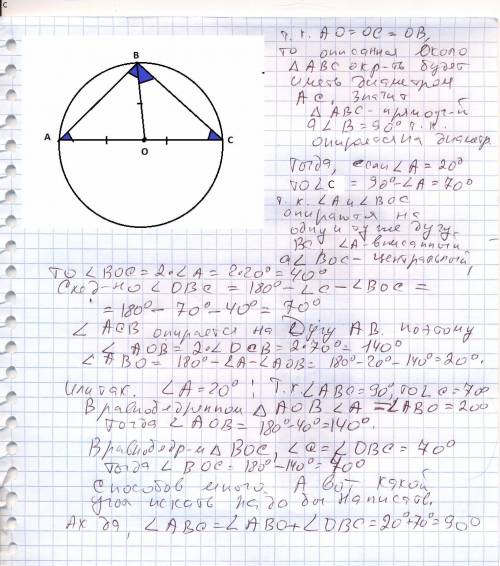 с
т.к. AO=OC=OB,
то описанная около
△ABC окр-ть будет
иметь диаметром
AC, значит
△ABC - прямоуг-й
а ∠B=90° т.к.
опирается на диаметр
B
A
C
O
Тогда, если ∠A=20°
то ∠C = 90°-∠A=70°
т.к. ∠A и ∠BOC
опираются на
одну и ту же дугу
BC ∠A вписанный
а ∠BOC - центральный,
то ∠BOC=2·∠A=2·20°=40°
След-но ∠OBC = 180°-∠C-∠BOC =
= 180°-70°-40°= 70°
∠ACB опирается на Дугу AB. поэтому
∠AOB=2·∠OCB=2·70°= 140°
∠ABO= 180°-∠A-∠AOB= 180°-20°-140°=20°.
Или так. ∠A=20°; Т.к ∠ABC=90°, то ∠C=70°
В равнобедренной △AOB ∠A=∠ABO=20°
Тогда ∠AOB=180°-40°=140°.
В равнобедр-м △BOC, ∠C=∠OBC=70°
Тогда ∠BOC=180°-140°=70°
Способов много. А вот какой
угол искать надо бы написать.
Ах да, ∠ABC=∠ABO+∠OBC=20°+70°=90°